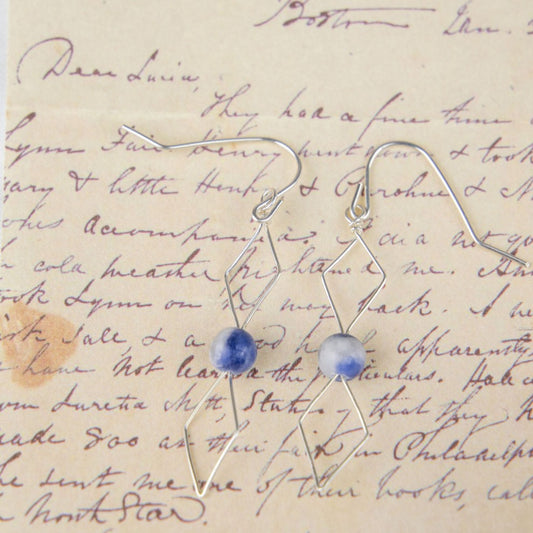 Boston Jan.
Dear Lucia,
They had a fine time
Lynn Fair Henry went down & took
Mary & little Hen & Caroline & M
accompanied. I did not go
cold weather frightened me. An
took Lynn on my way back. A ne
Sale, & a good apparently
have not learned the particulars. Had
from Luretia Mott, Stating that they h
made 800 at their fair in Philadelp
he sent me one of their books, cal
North Star.